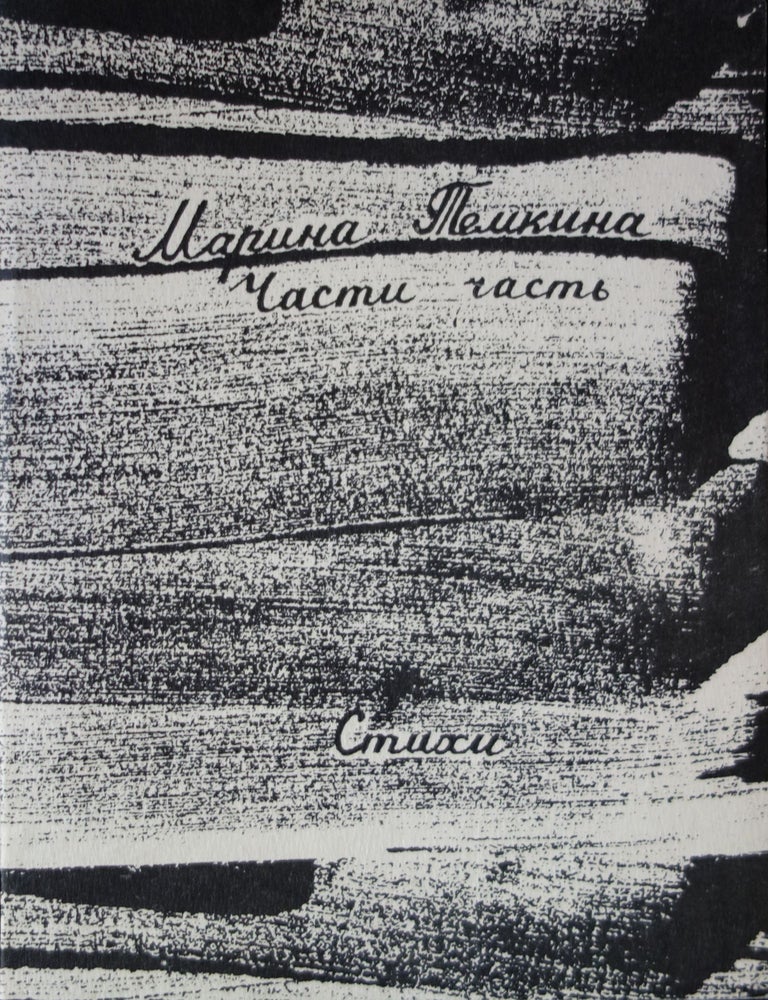 Марина Темкина
Части часть
Стихи